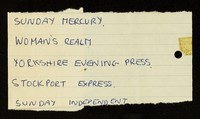 SUNDAY MERCURY.
WOMAN'S REALM
YORKSHIRE EVENING PRESS.
STOCKPORT EXPRESS.
SUNDAY INDEPENDENT